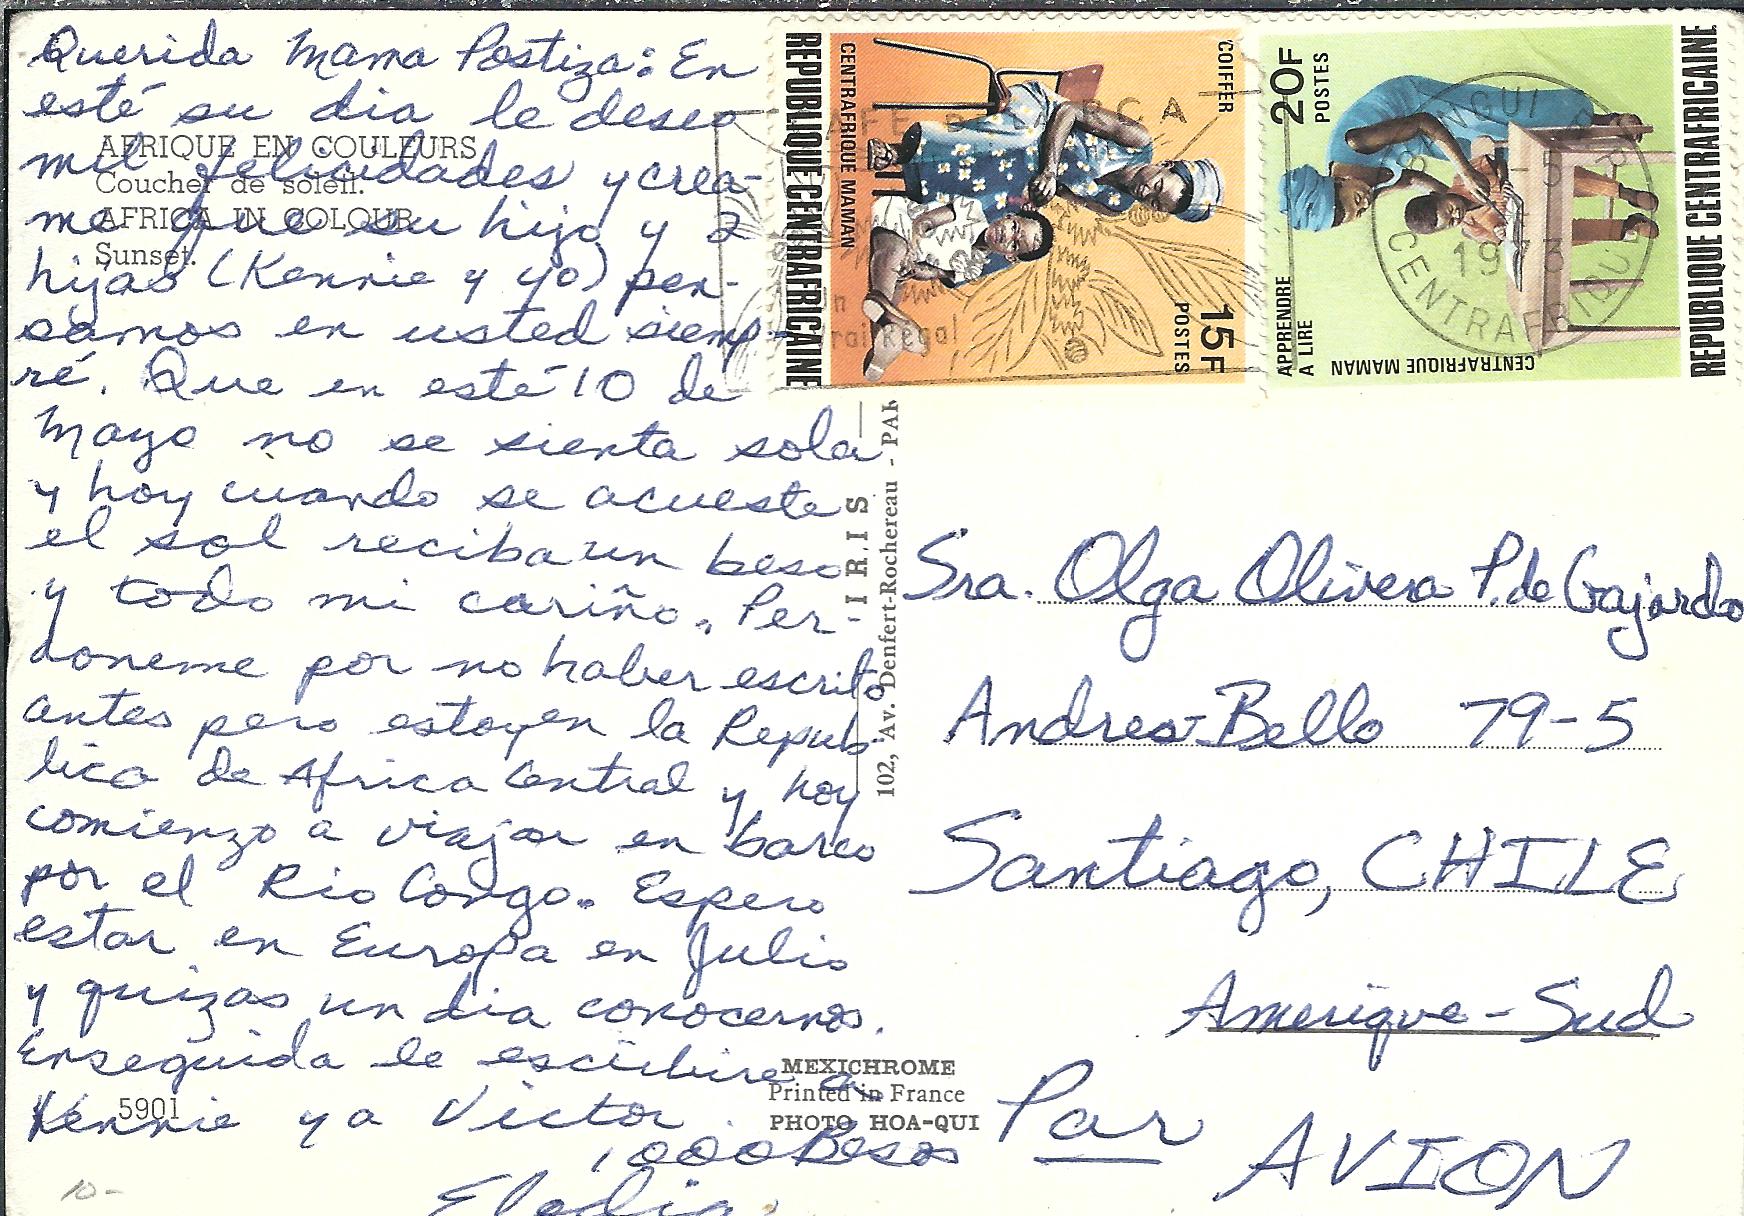 Querida Mama Postiza: En
esté su dia le deseo
mil felicidades y crea-
me que su hijo y 2
hijas (Kennie y yo) pen-
samos en usted siemp-
ré. Que en esté 10 de
Mayo no se sienta sola
y hoy cuando se acueste
el sol reciba un beso
y todo mi cariño. Per-
doneme por no haber escrito
antes pero estoy en la Repub-
lica de Africa Central y hoy
comienzo a viajar en barco
por el Rio Congo. Espero
estar en Europa en Julio
y quizas un dia conocernos.
Enseguida le escribire a
Kennie y a Victor.
1000 Besos
Elodia.
AFRIQUE EN COULEURS
Coucher de soleil.
AFRICA IN COLOUR
Sunset.
5901
10-
I R I S
102, Av. Denfert-Rochereau - PAR
MEXICHROME
Printed in France
PHOTO HOA-QUI
REPUBLIQUE CENTRAFRICAINE
CENTRAFRIQUE MAMAN
COIFFER
15F
POSTES
20F
POSTES
APPRENDRE
A LIRE
CENTRAFRIQUE MAMAN
REPUBLIQUE CENTRAFRICAINE
BANGUI
1973
CENTRAFRIQUE
Sra. Olga Olivera P. de Gajardo
Andres Bello 79-5
Santiago, CHILE
Amerique-Sud
Par
AVION